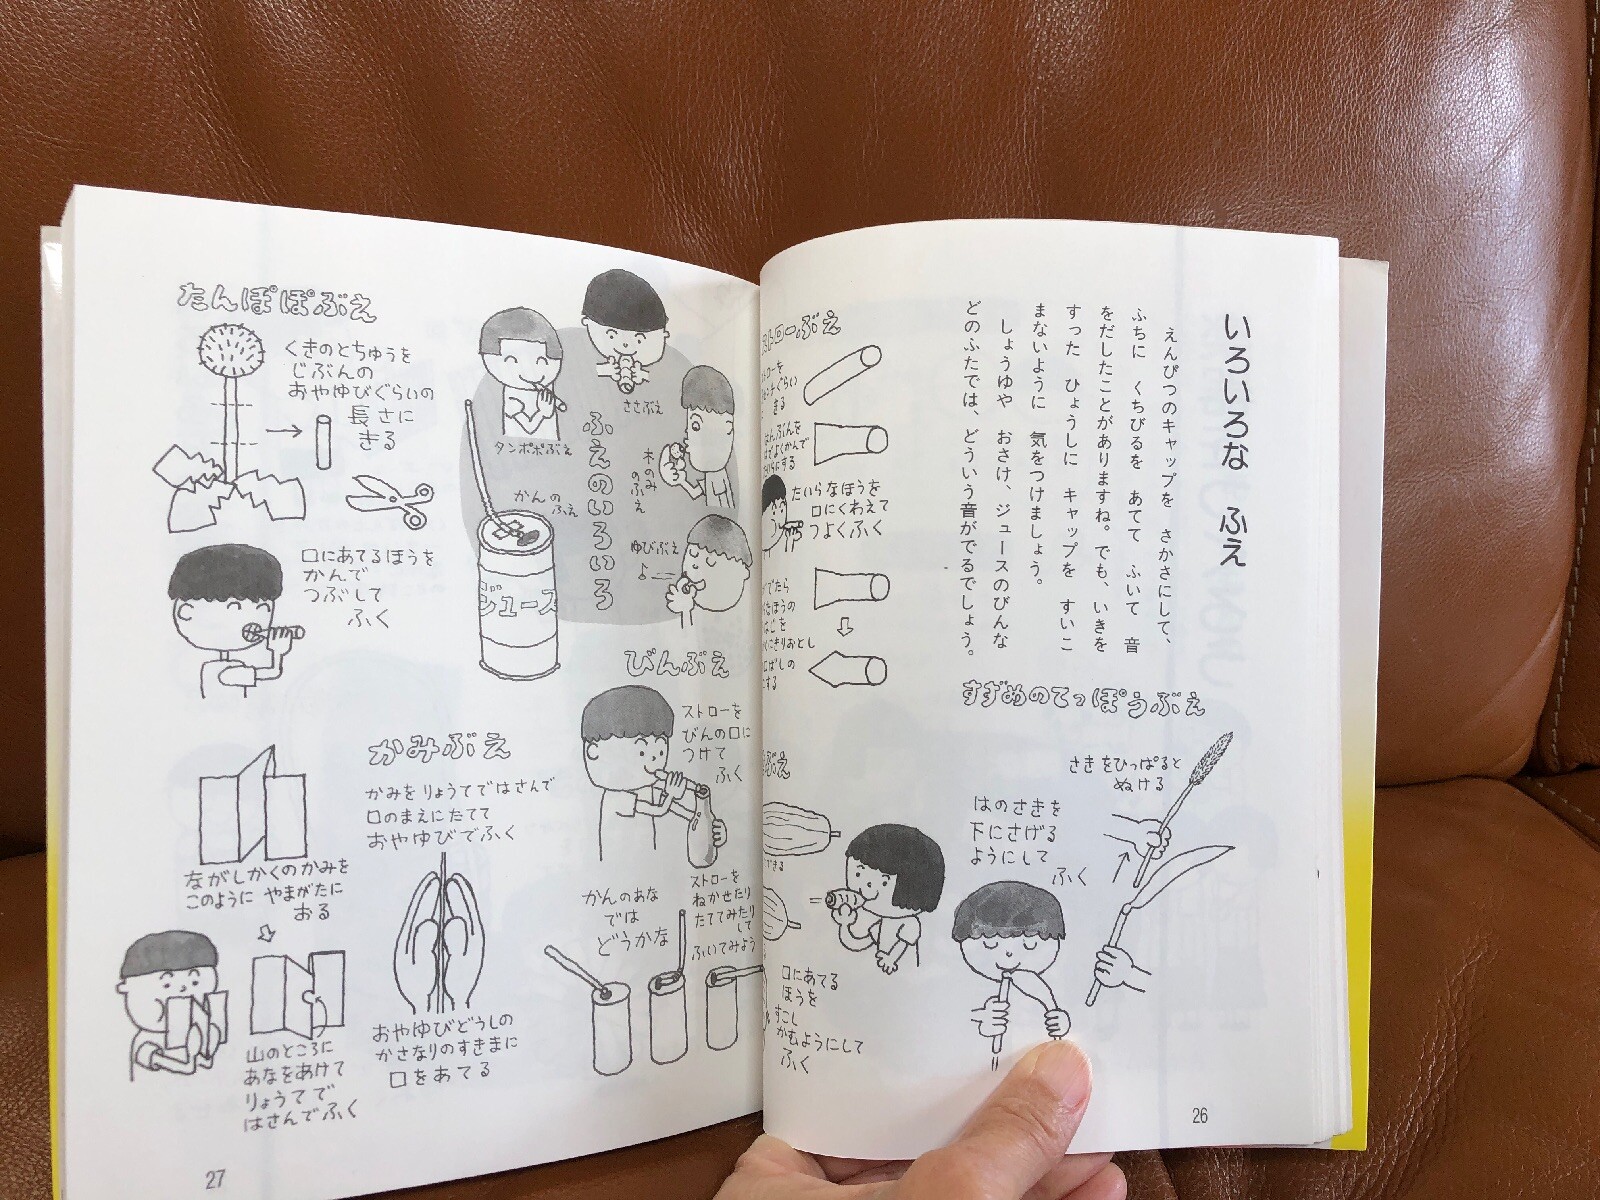 いろいろな ふえ
えんぴつのキャップを さかさにして、
ふちに くちびるを あてて ふいて 音
をだしたことがありますね。でも、いきを
すった ひょうしに キャップを すいこ
まないように 気をつけましょう。
しょうゆや おさけ、ジュースのびんな
どのふたでは、どういう音がでるでしょう。
すずめのてっぽうぶえ
さきをひっぱると
ぬける
はのさきを
下にさげる
ようにして
ふく
トローぶえ
ストローを
ンチぐらい
きる
はんぶんを
よくかんで
にする
たいらなほうを
口にくわえて
つよくふく
でたら
なほうの
にきりおとし
ばしの
する
ぶえ
できる
口にあてる
ほうを
すこし
かむようにして
ふく
26
ふえのいろいろ
ささぶえ
タンポポぶえ
木のみのふえ
かんの
ふえ
ゆびぶえ
ジュース
たんぽぽぶえ
くきのとちゅうを
じぶんの
おやゆびぐらいの
長さに
きる
口にあてるほうを
かんで
つぶして
ふく
びんぶえ
ストローを
びんの口に
つけて
ふく
ストローを
ねかせたり
たててみたり
して
ふいてみよう
かんのあな
では
どうかな
かみぶえ
かみをりょうてではさんで
口のまえにたてて
おやゆびでふく
おやゆびどうしの
かさなりのすきまに
口をあてる
ながしかくのかみを
このように やまがたに
おる
山のところに
あなをあけて
りょうてで
はさんでふく
27